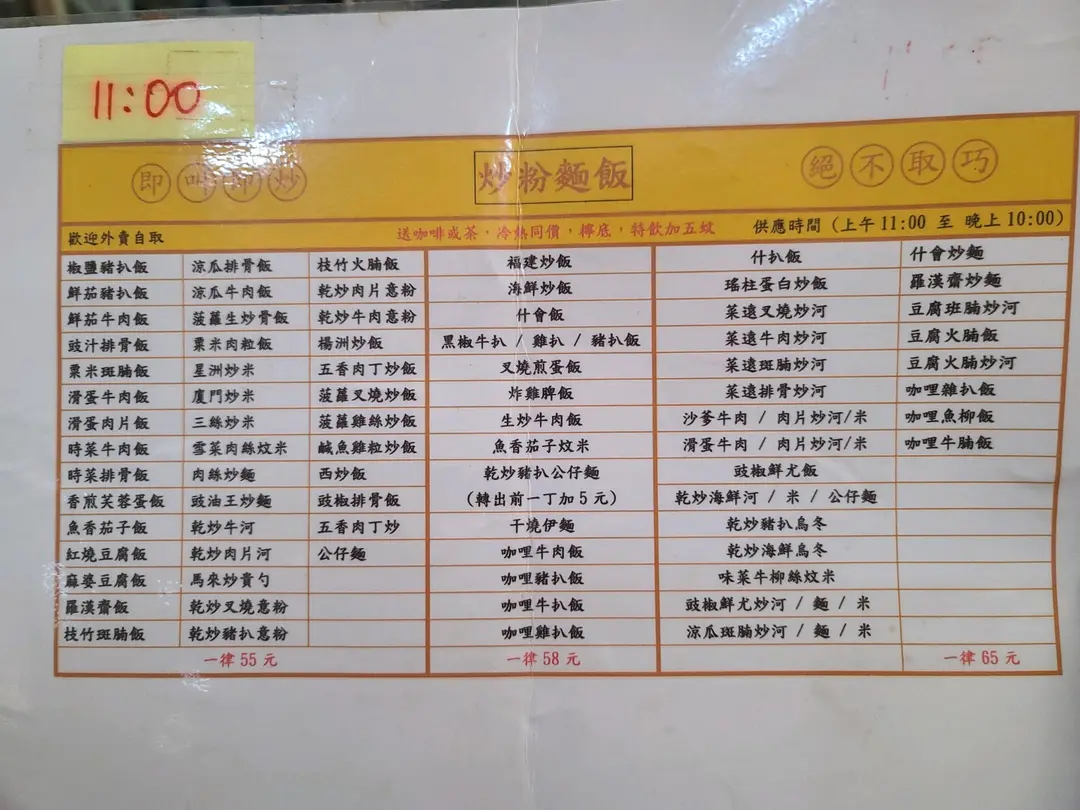 11:00
即叫即炒 炒粉麵飯 絕不取巧
歡迎外賣自取 送咖啡或茶，冷熱同價，檸底，特飲加五蚊 供應時間 (上午 11:00 至 晚上 10:00)
椒鹽豬扒飯 涼瓜排骨飯 枝竹火腩飯 福建炒飯 什扒飯 什會炒麵
鮮茄豬扒飯 涼瓜牛肉飯 乾炒肉片意粉 海鮮炒飯 瑤柱蛋白炒飯 羅漢齋炒麵
鮮茄牛肉飯 菠蘿生炒骨飯 乾炒牛肉意粉 什會飯 菜遠叉燒炒河 豆腐班腩炒河
豉汁排骨飯 粟米肉粒飯 楊洲炒飯 黑椒牛扒 / 雞扒 / 豬扒飯 菜遠牛肉炒河 豆腐火腩飯
粟米斑腩飯 星洲炒米 五香肉丁炒飯 叉燒煎蛋飯 菜遠斑腩炒河 豆腐火腩炒河
滑蛋牛肉飯 廈門炒米 菠蘿叉燒炒飯 炸雞脾飯 菜遠排骨炒河 咖哩雜扒飯
滑蛋肉片飯 三絲炒米 菠蘿雞絲炒飯 生炒牛肉飯 沙爹牛肉 / 肉片炒河/米 咖哩魚柳飯
時菜牛肉飯 雪菜肉絲炆米 鹹魚雞粒炒飯 魚香茄子炆米 滑蛋牛肉 / 肉片炒河/米 咖哩牛腩飯
時菜排骨飯 肉絲炒麵 西炒飯 乾炒豬扒公仔麵 豉椒鮮尤飯
香煎芙蓉蛋飯 豉油王炒麵 豉椒排骨飯 (轉出前一丁加 5 元) 乾炒海鮮河 / 米 / 公仔麵
魚香茄子飯 乾炒牛河 五香肉丁炒 干燒伊麵 乾炒豬扒烏冬
紅燒豆腐飯 乾炒肉片河 公仔麵 咖哩牛肉飯 乾炒海鮮烏冬
麻婆豆腐飯 馬來炒貴勺 咖哩豬扒飯 味菜牛柳絲炆米
羅漢齋飯 乾炒叉燒意粉 咖哩牛扒飯 豉椒鮮尤炒河 / 麵 / 米
枝竹斑腩飯 乾炒豬扒意粉 咖哩雞扒飯 涼瓜斑腩炒河 / 麵 / 米
一律 55 元 一律 58 元 一律 65 元